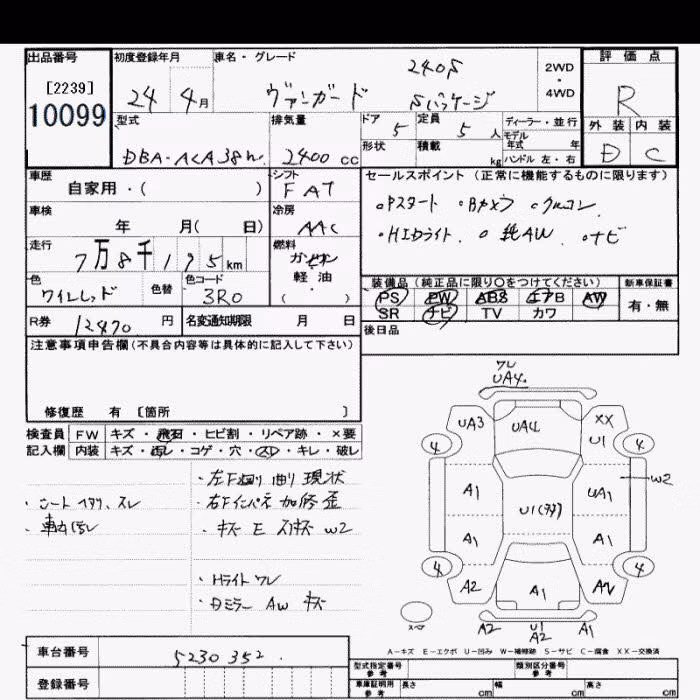 出品番号
[2239]
10099
初度登録年月
24 4月
車名・グレード
240S
ヴァンガード Sパッケージ
2WD
・
4WD
評価点
R
外装 内装
D C
型式
DBA-ACA38W
排気量
2400 cc
ドア 5
定員 5 人
形状
積載 kg
ディーラー・並行
モデル年式 年
ハンドル 左・右
車歴
自家用・( )
シフト
FAT
車検
年 月( 日)
冷房
AAC
走行
7万8千195km
燃料
ガソリン
軽・油
( )
色
ワインレッド
色替
色コード
3R0
R券 12470 円
名変通知期限 月 日
セールスポイント(正常に機能するものに限ります)
・Pスタート ・Bカメラ ・クルコン
・HIDライト ・純AW ・ナビ
装備品(純正品に限り○をつけてください)
PS PW ABS エアB AW
SR ナビ TV カワ
新車保証書
有・無
後日品
注意事項申告欄(不具合内容等は具体的に記入して下さい)
修復歴 有 [箇所 ]
検査員 FW キズ・飛石・ヒビ割・リペア跡・×要
記入欄 内装 キズ・汚レ・コゲ・穴・スレ・キレ・破レ
・シートヘタリ、スレ
・車内汚レ
・左F廻り曲り現状
・右Fインパネ加修歪
・キズ E スリキズ W2
・Hライト ワレ
・Dミラー AW キズ
ワレ
UA4
UA3 UA4 XX
U1
4 4
W2
A1 U1(多数) UA1
A1 A1
4 4
A2 A1 AW
スペア
A2 U1 A1
A2
A-キズ E-エクボ U-凹み W-補修跡 S-サビ C-腐食 XX-交換済
車台番号 5230352
登録番号
型式指定番号
参考
類別区分番号
参考
車庫証明用
参考
長さ cm
幅 cm
高さ cm